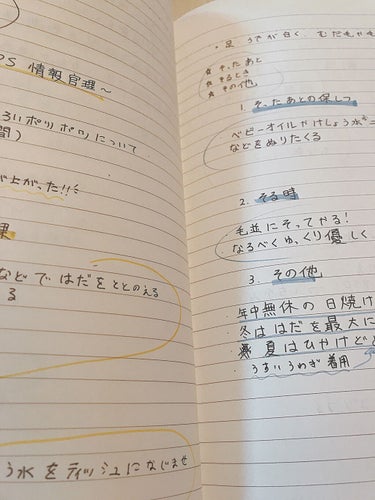 PS 情報管理～
ろいポツポツについて
間)
が上がった!!
果
などで はだを ととのえる
る
う水をティッシュになじませ
・足 うでが白く むだ毛や毛
☆ そったあと
☆ そるとき
☆ その他
1. そったあとの保しつ
ベビーオイルやけしょう水
などをぬりたくる
2. そる時
毛並にそってやる!
なるべくゆっくり優しく
3. その他
・年中無休の日焼け
・冬ははだを最大に
・夏はひやけど
・うすいうわぎ着用